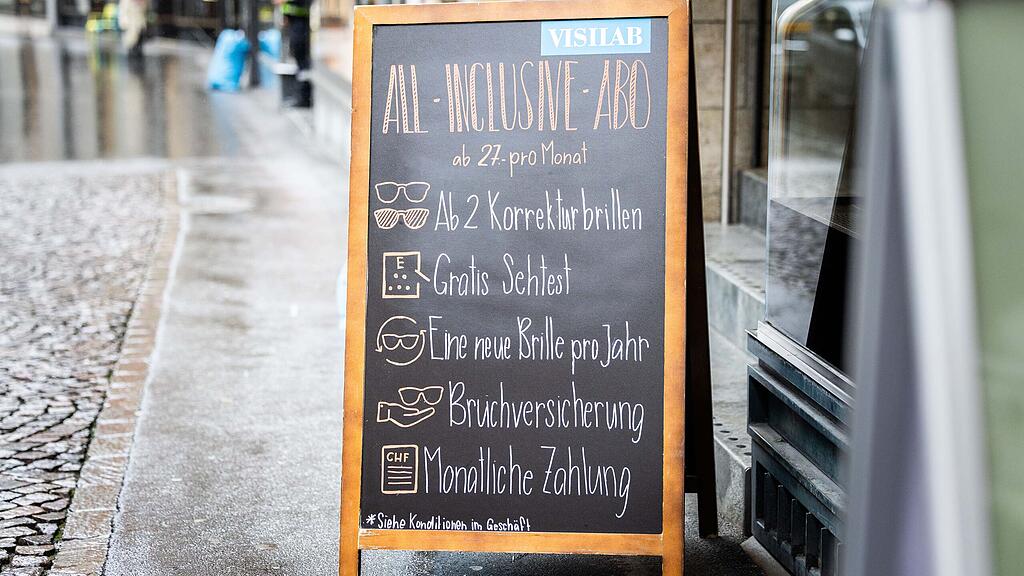 VISILAB
ALL-INCLUSIVE-ABO
ab 27.- pro Monat
Ab 2 Korrekturbrillen
E
Gratis Sehtest
Eine neue Brille pro Jahr
Bruchversicherung
CHF
Monatliche Zahlung
*Siehe Konditionen im Geschäft